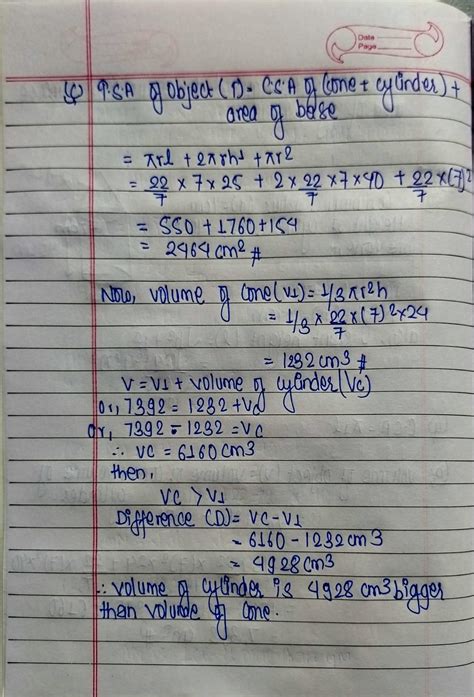 Date
Page
(c) T.S.A of object (T) = C.S.A of (cone + cylinder) +
area of base
= πrl + 2πrh¹ + πr²
= 22/7 × 7 × 25 + 2 × 22/7 × 7 × 40 + 22/7 × (7)²
= 550 + 1760 + 154
= 2464 cm² #
Now, volume of cone (V1) = 1/3 πr²h
= 1/3 × 22/7 × (7)² × 24
= 1232 cm3 #
V = V1 + volume of cylinder (Vc)
or, 7392 = 1232 + Vc
or, 7392 - 1232 = Vc
∴ VC = 6160 cm3
then,
VC > V1
Difference (D) = VC - V1
= 6160 - 1232 cm3
= 4928 cm3
∴ volume of cylinder is 4928 cm3 bigger
than volume of cone.